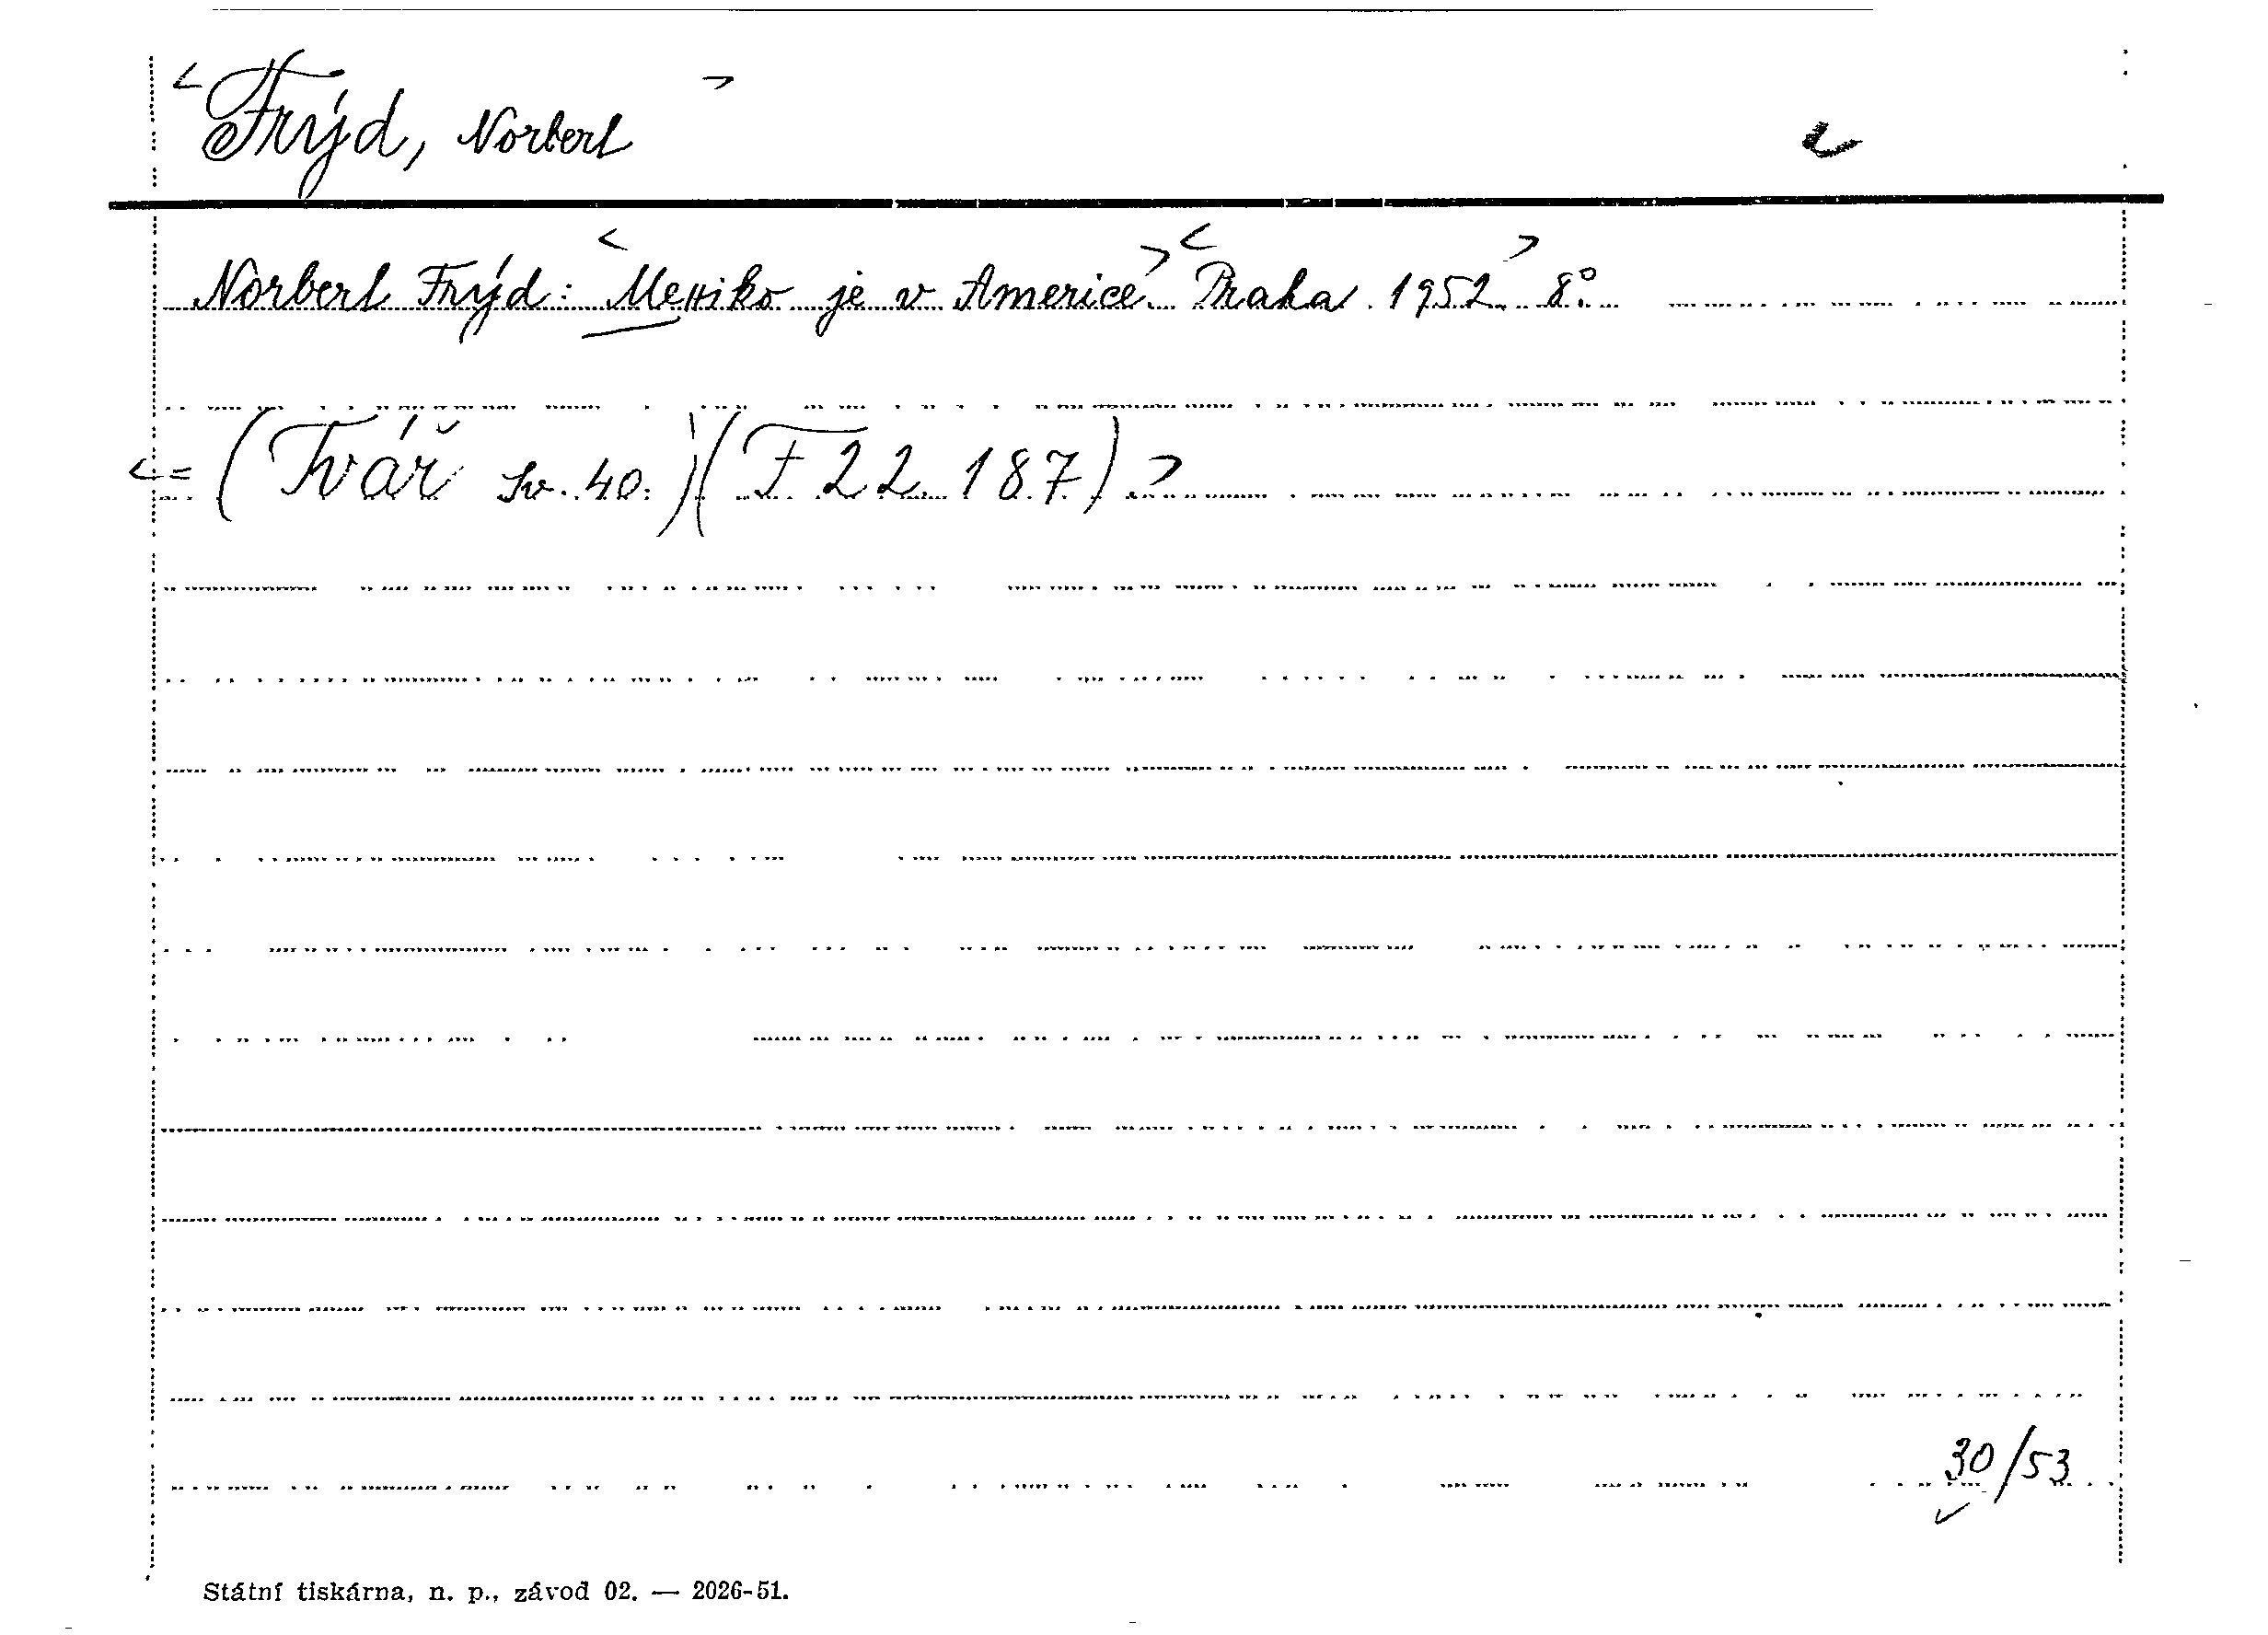 <Frýd, Norbert>
Norbert Frýd: <Mexiko je v Americe.> <Praha 1952> 8°.
<= (Tvář sv. 40.) (F 22 187)>
30/53
Státní tiskárna, n. p., závod 02. — 2026-51.